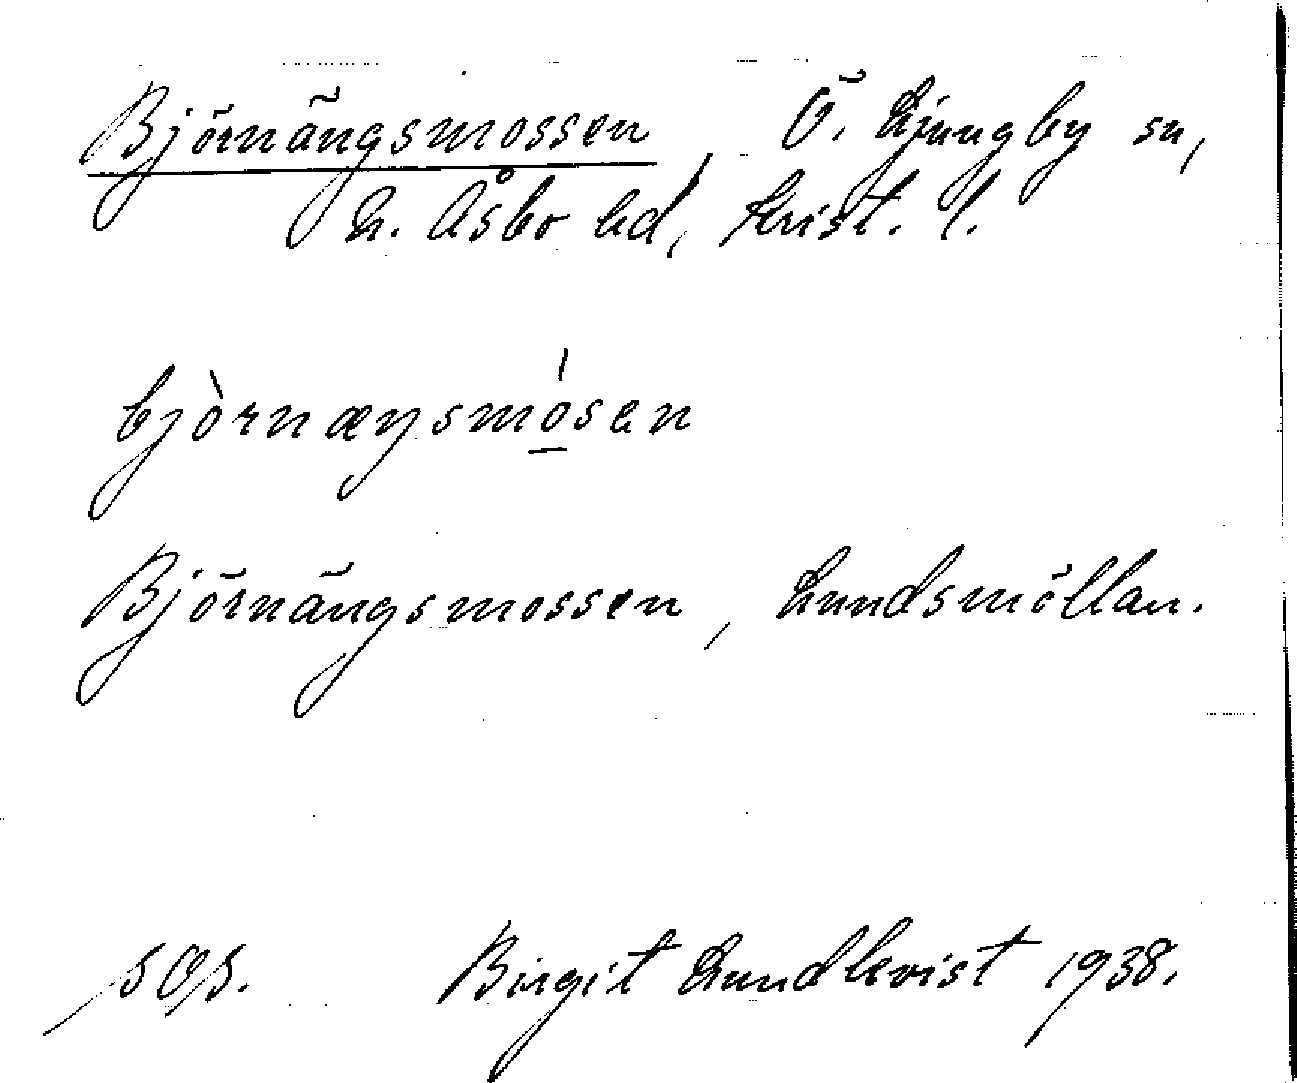 Björnängsmossen, Ö. Ljungby sn,
N. Åsbo hd, Krist. l.
bjòrnæŋsmósen
Björnängsmossen, Lundsmöllan.
Birgit Lundkvist 1938.